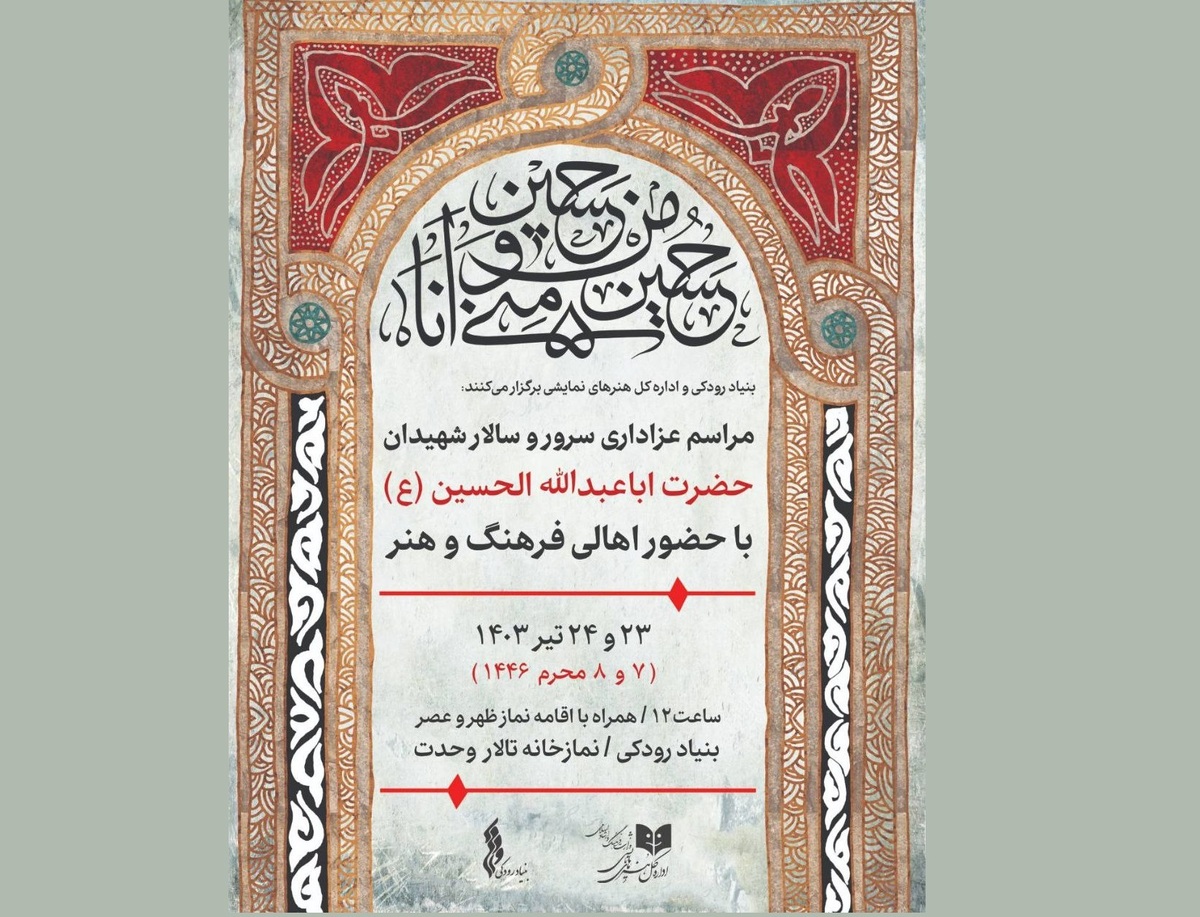 حسین منی و انا من حسین
بنیاد رودکی و اداره کل هنرهای نمایشی برگزار می‌کنند:
مراسم عزاداری سرور و سالار شهیدان
حضرت اباعبدالله الحسین (ع)
با حضور اهالی فرهنگ و هنر
۲۳ و ۲۴ تیر ۱۴۰۳
(۷ و ۸ محرم ۱۴۴۶)
ساعت۱۲ / همراه با اقامه نماز ظهر و عصر
بنیاد رودکی / نمازخانه تالار وحدت
اداره کل هنرهای نمایشی
بنیاد رودکی